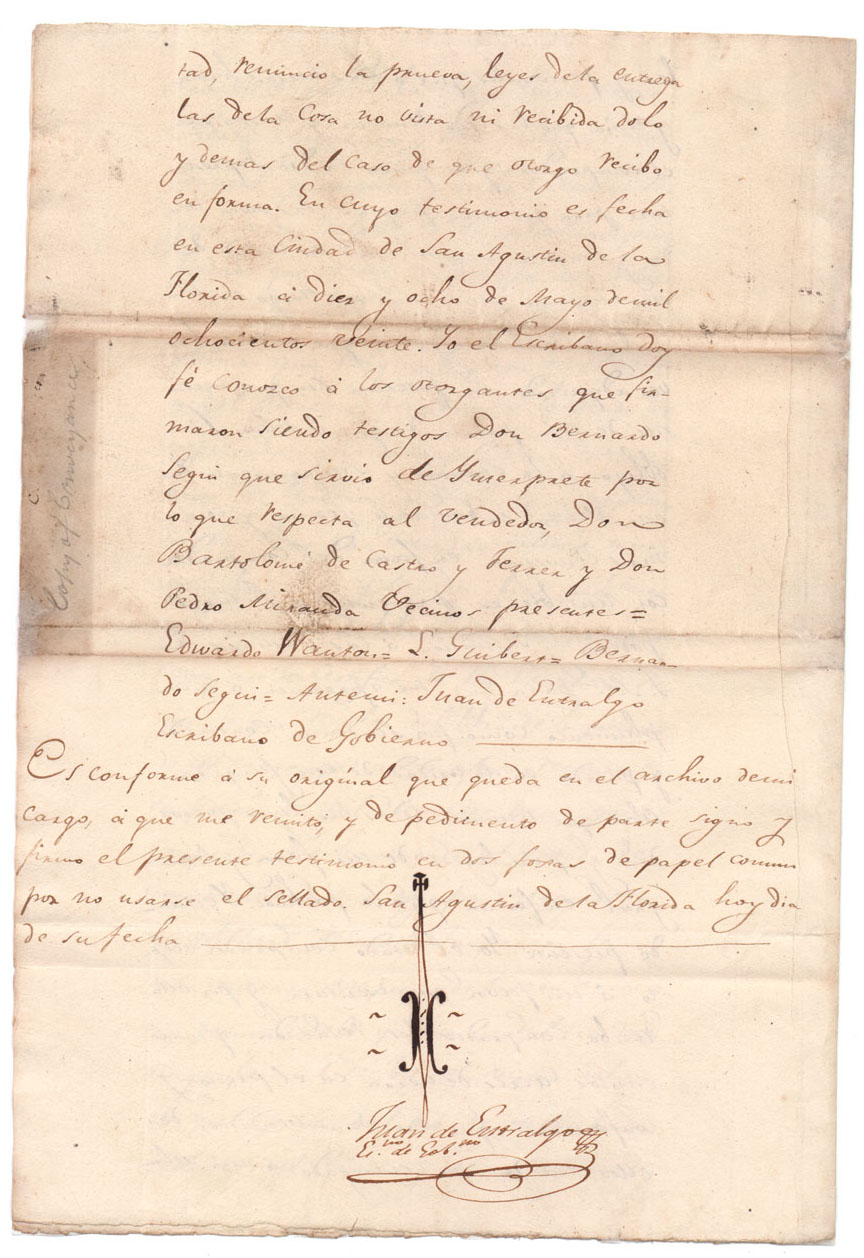 tad, renuncio la prueva, leyes dela entrega
las dela Cosa no vista ni recibida dolo
y demas del caso de que otorgo recibo
en forma. En cuyo testimonio es fecha
en esta Ciudad de San Agustin de la
Florida à diez y ocho de Mayo demil
ochocientos veinte. Yo el Escribano doy
fé conozco à los otorgantes que fir-
maron siendo testigos Don Bernardo
Segui que sirvio de Ynterprete por
lo que respecta al vendedor, Don
Bartolomé de Castro y Ferrer y Don
Pedro Miranda Vecinos presentes=
Edwardo Wanton= L. Guibert= Bernar-
do Segui= Antemi: Juan de Entralgo
Escribano de Gobierno
Es conforme á su original que queda en el archivo demi
cargo, á que me remito, y de pedimento de parte signo y
firmo el presente testimonio en dos foxas de papel comun
por no usarse el sellado. San Agustin de la Florida hoy dia
de su fecha
Juan de Entralgo
Es.no de Gob.no
Copy of Conveyance